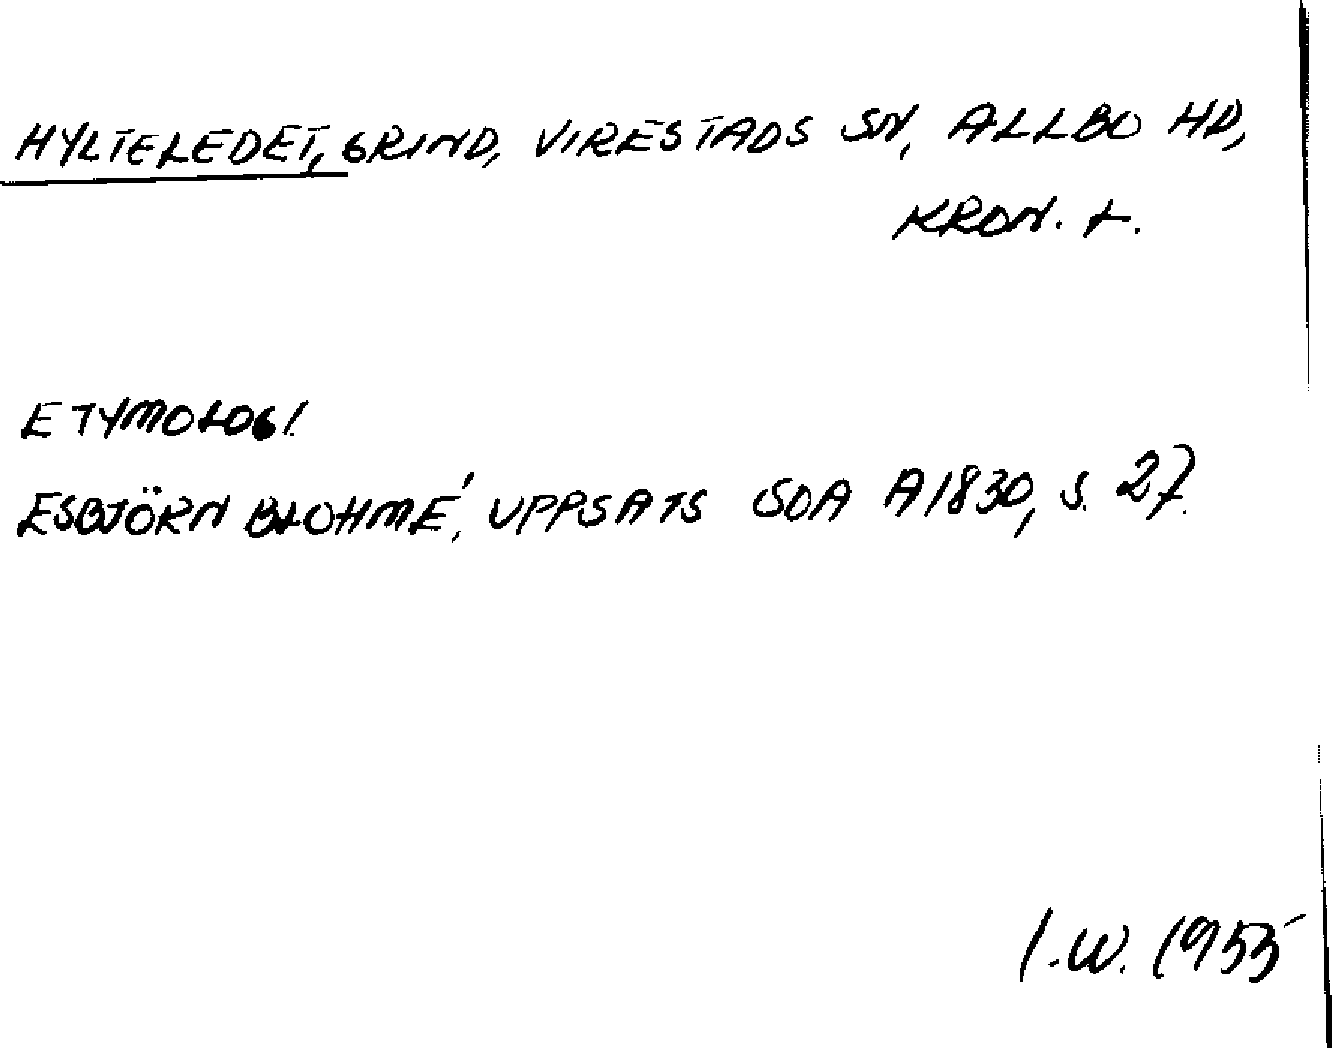 HYLTELEDET, GRIND, VIRESTADS SN, ALLBO HD,
KRON. L.
ETYMOLOGI.
ESBJÖRN BLOHMÉ, UPPSATS SOA A1830, S. 27.
I.W. 1955